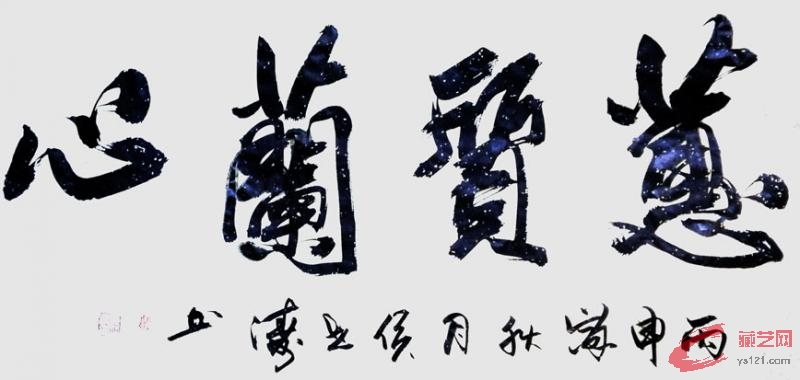 蕙質蘭心
丙申歲秋月侯濤书
藏艺网
ys121.com